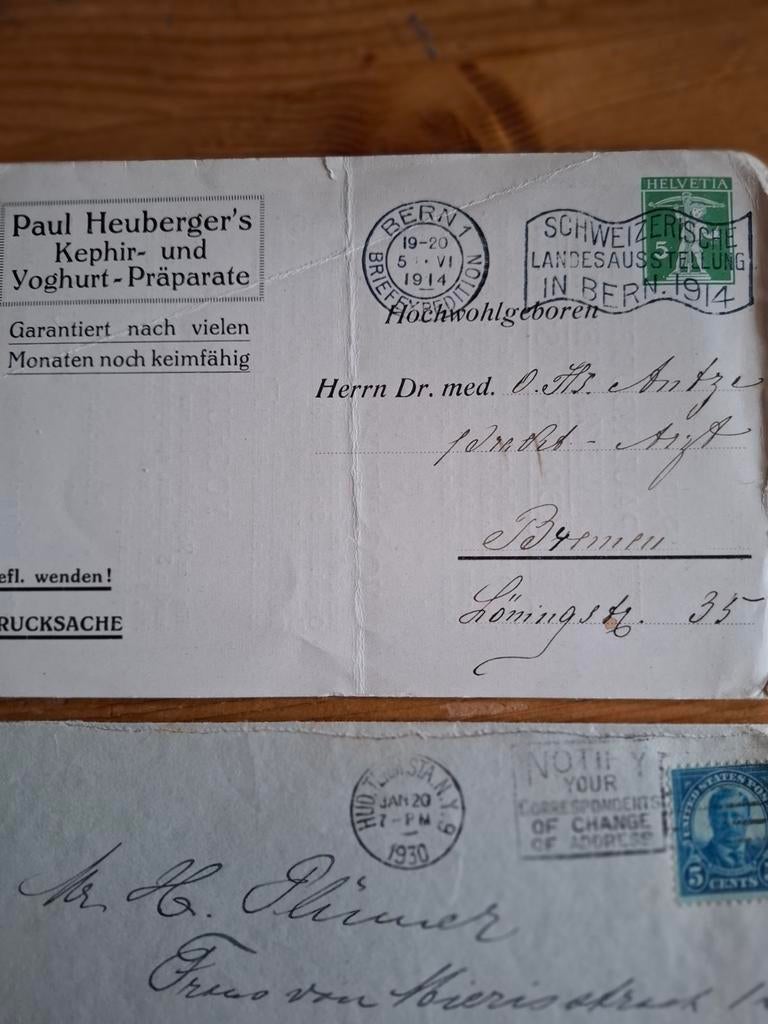 Paul Heuberger's
Kephir- und
Yoghurt-Präparate
Garantiert nach vielen
Monaten noch keimfähig
efl. wenden!
RUCKSACHE
BERN 1
19-20
5 · VI
1914
BRIEFEXPEDITION
SCHWEIZERISCHE
LANDESAUSSTELLUNG
IN BERN. 1914
HELVETIA
5
Hochwohlgeboren
Herrn Dr. med. O. Th. Antze
pract - Arzt
Bremen
Löningstr. 35
HUD. TERM. STA. N.Y. 9
JAN 20
7-PM
1930
NOTIFY
YOUR
CORRESPONDENTS
OF CHANGE
OF ADDRESS
UNITED STATES POS
5 CENTS
Mr. H.
Frans van Mierisstraat